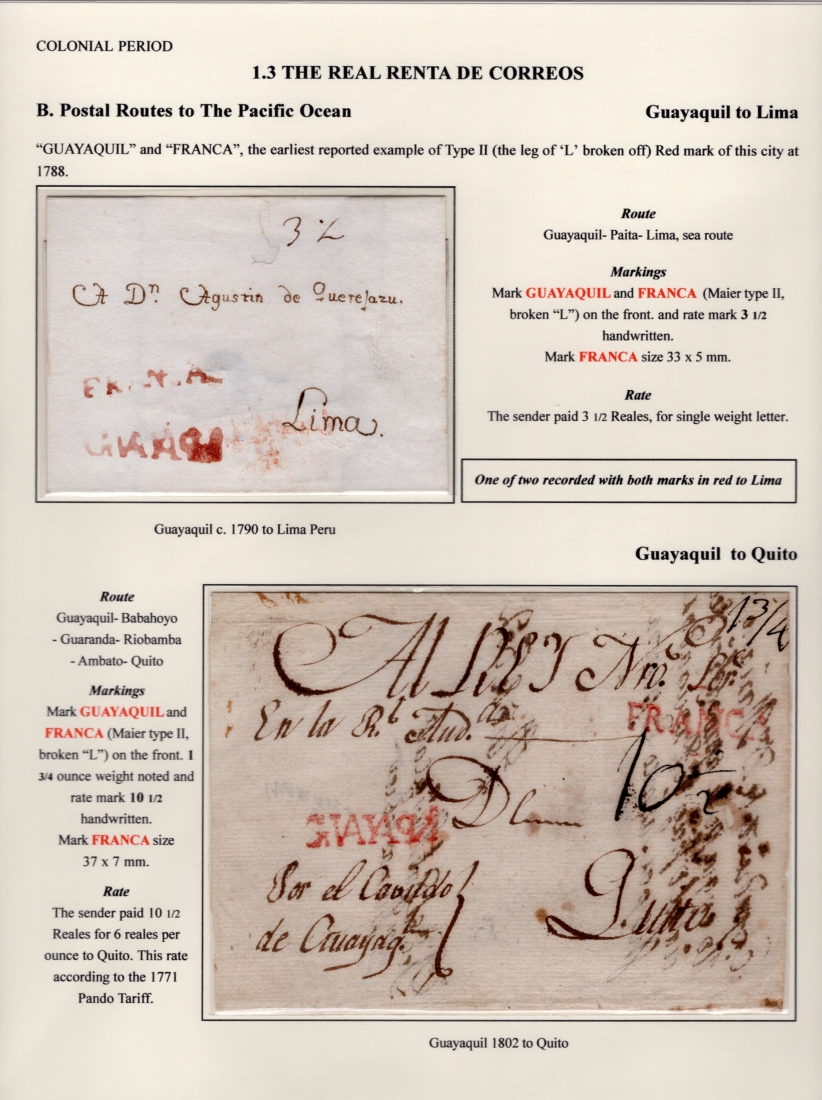 COLONIAL PERIOD
1.3 THE REAL RENTA DE CORREOS
B. Postal Routes to The Pacific Ocean
Guayaquil to Lima
“GUAYAQUIL” and “FRANCA”, the earliest reported example of Type II (the leg of ‘L’ broken off) Red mark of this city at
1788.
A Dn. Agustin de Querejazu.
FRANCA
Lima.
Route
Guayaquil- Paita- Lima, sea route
Markings
Mark GUAYAQUIL and FRANCA (Maier type II,
broken “L”) on the front. and rate mark 3 1/2
handwritten.
Mark FRANCA size 33 x 5 mm.
Rate
The sender paid 3 1/2 Reales, for single weight letter.
One of two recorded with both marks in red to Lima
Guayaquil c. 1790 to Lima Peru
Guayaquil to Quito
Route
Guayaquil- Babahoyo
- Guaranda- Riobamba
- Ambato- Quito
Markings
Mark GUAYAQUIL and
FRANCA (Maier type II,
broken “L”) on the front. 1
3/4 ounce weight noted and
rate mark 10 1/2
handwritten.
Mark FRANCA size
37 x 7 mm.
Rate
The sender paid 10 1/2
Reales for 6 reales per
ounce to Quito. This rate
according to the 1771
Pando Tariff.
1 3/4
Al REY Nro. Sr.
En la Rl. Aud.a
FRANCA
10
Quito
Por el Cavildo
de Guayaql.
Guayaquil 1802 to Quito